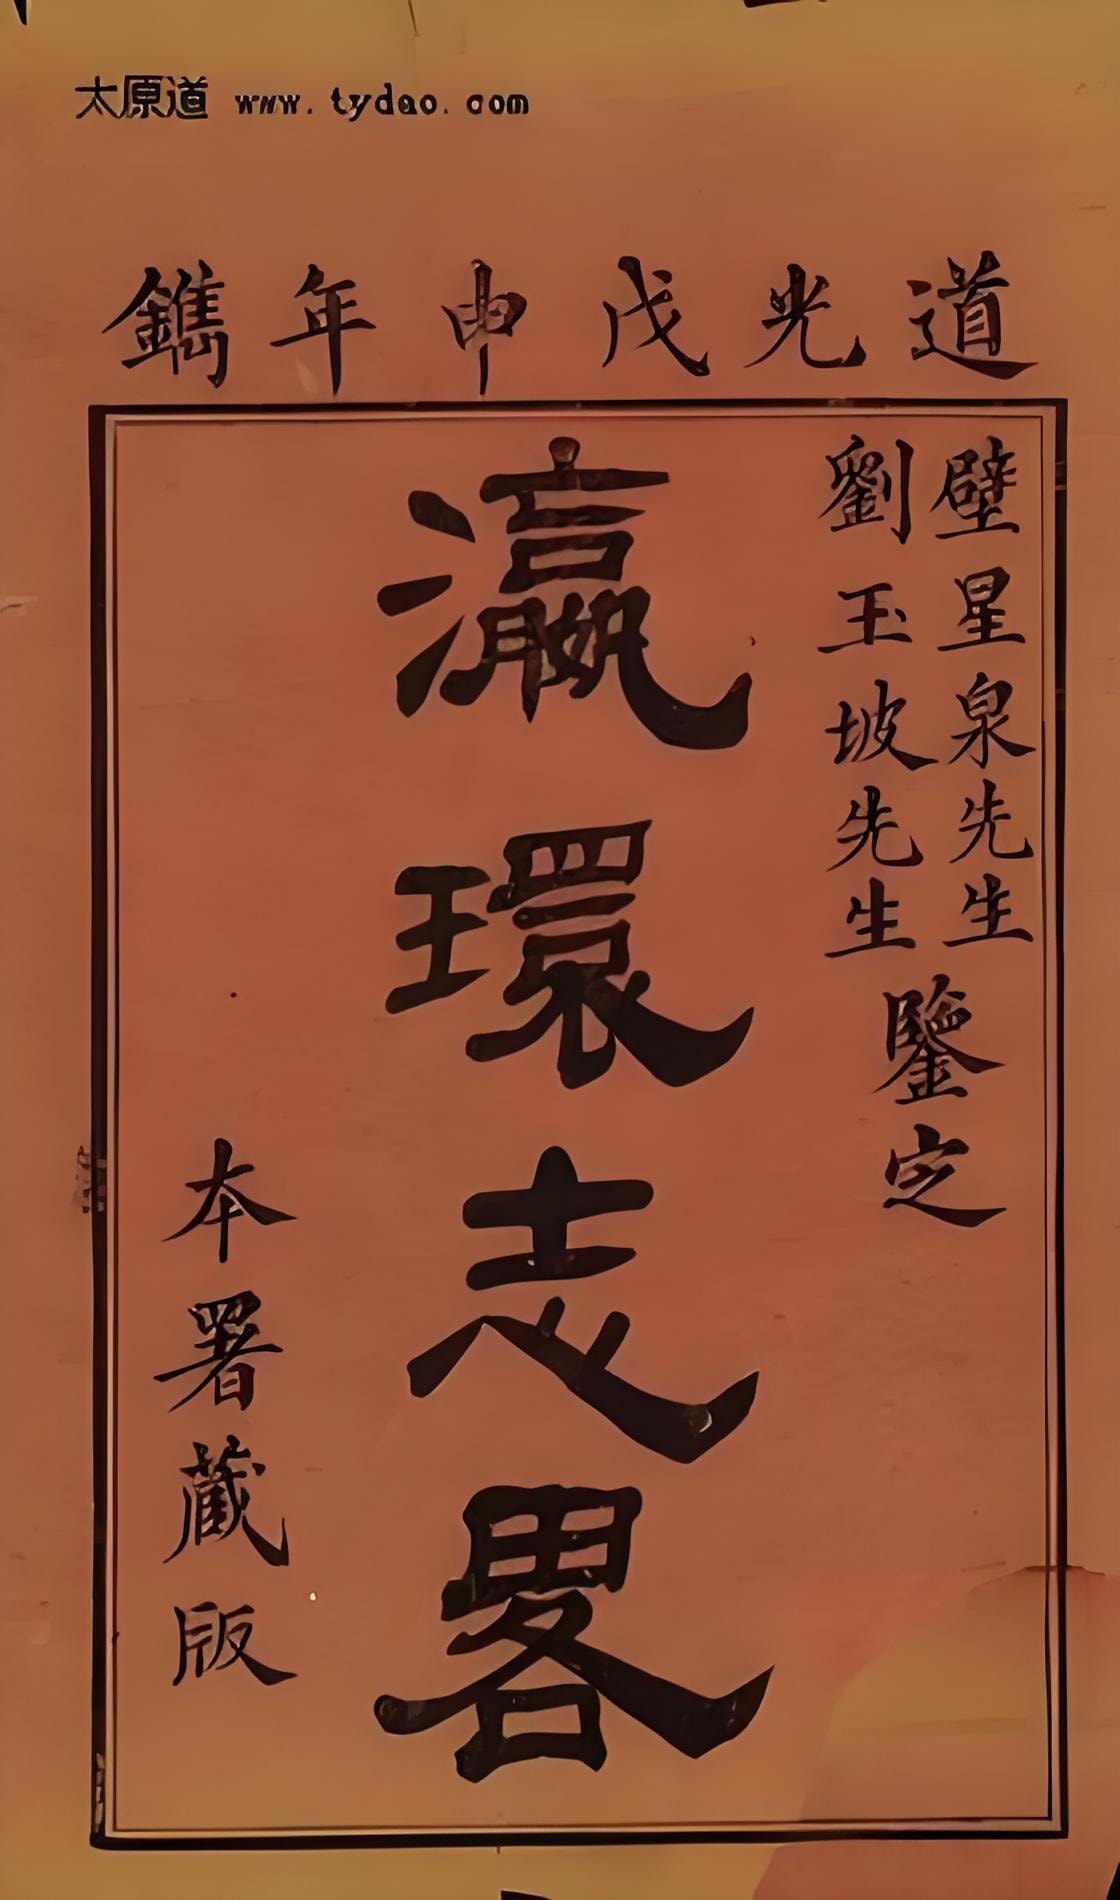 太原道 www.tydao.com
道光戊申年鐫
壁星泉先生
劉玉坡先生
鑒定
瀛環志畧
本署藏版